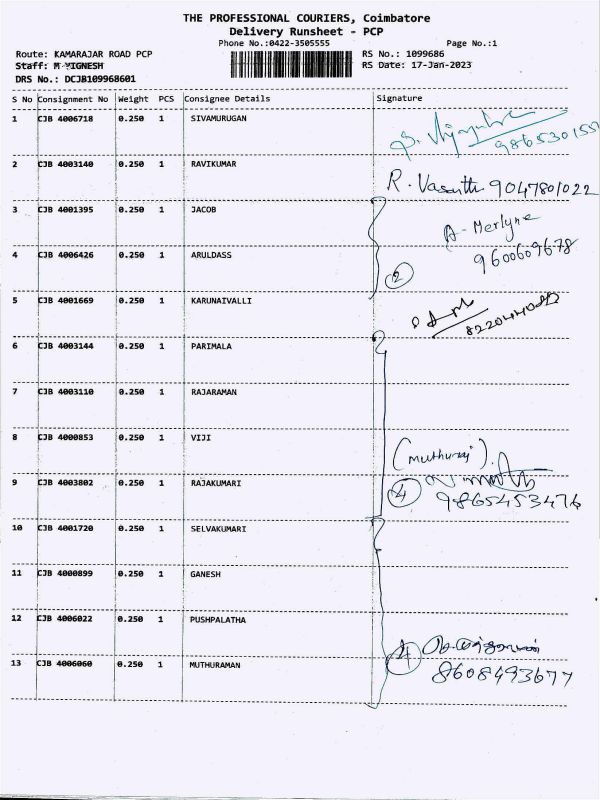 THE PROFESSIONAL COURIERS, Coimbatore
Delivery Runsheet - PCP
Phone No.:0422-3505555 Page No.:1
Route: KAMARAJAR ROAD PCP RS No.: 1099686
Staff: M VIGNESH RS Date: 17-Jan-2023
DRS No.: DCJB109968601
S No Consignment No Weight PCS Consignee Details Signature
1 CJB 4006718 0.250 1 SIVAMURUGAN
9865301557
2 CJB 4003140 0.250 1 RAVIKUMAR
R. Vasanth 9047801022
3 CJB 4001395 0.250 1 JACOB
A- Merlyne
4 CJB 4006426 0.250 1 ARULDASS
9600609678
2
5 CJB 4001669 0.250 1 KARUNAIVALLI
6 CJB 4003144 0.250 1 PARIMALA
7 CJB 4003110 0.250 1 RAJARAMAN
8 CJB 4000853 0.250 1 VIJI
(Muthuraj)
9 CJB 4003802 0.250 1 RAJAKUMARI
4 9865453476
10 CJB 4001720 0.250 1 SELVAKUMARI
11 CJB 4000899 0.250 1 GANESH
12 CJB 4006022 0.250 1 PUSHPALATHA
4
13 CJB 4006060 0.250 1 MUTHURAMAN
8608493677